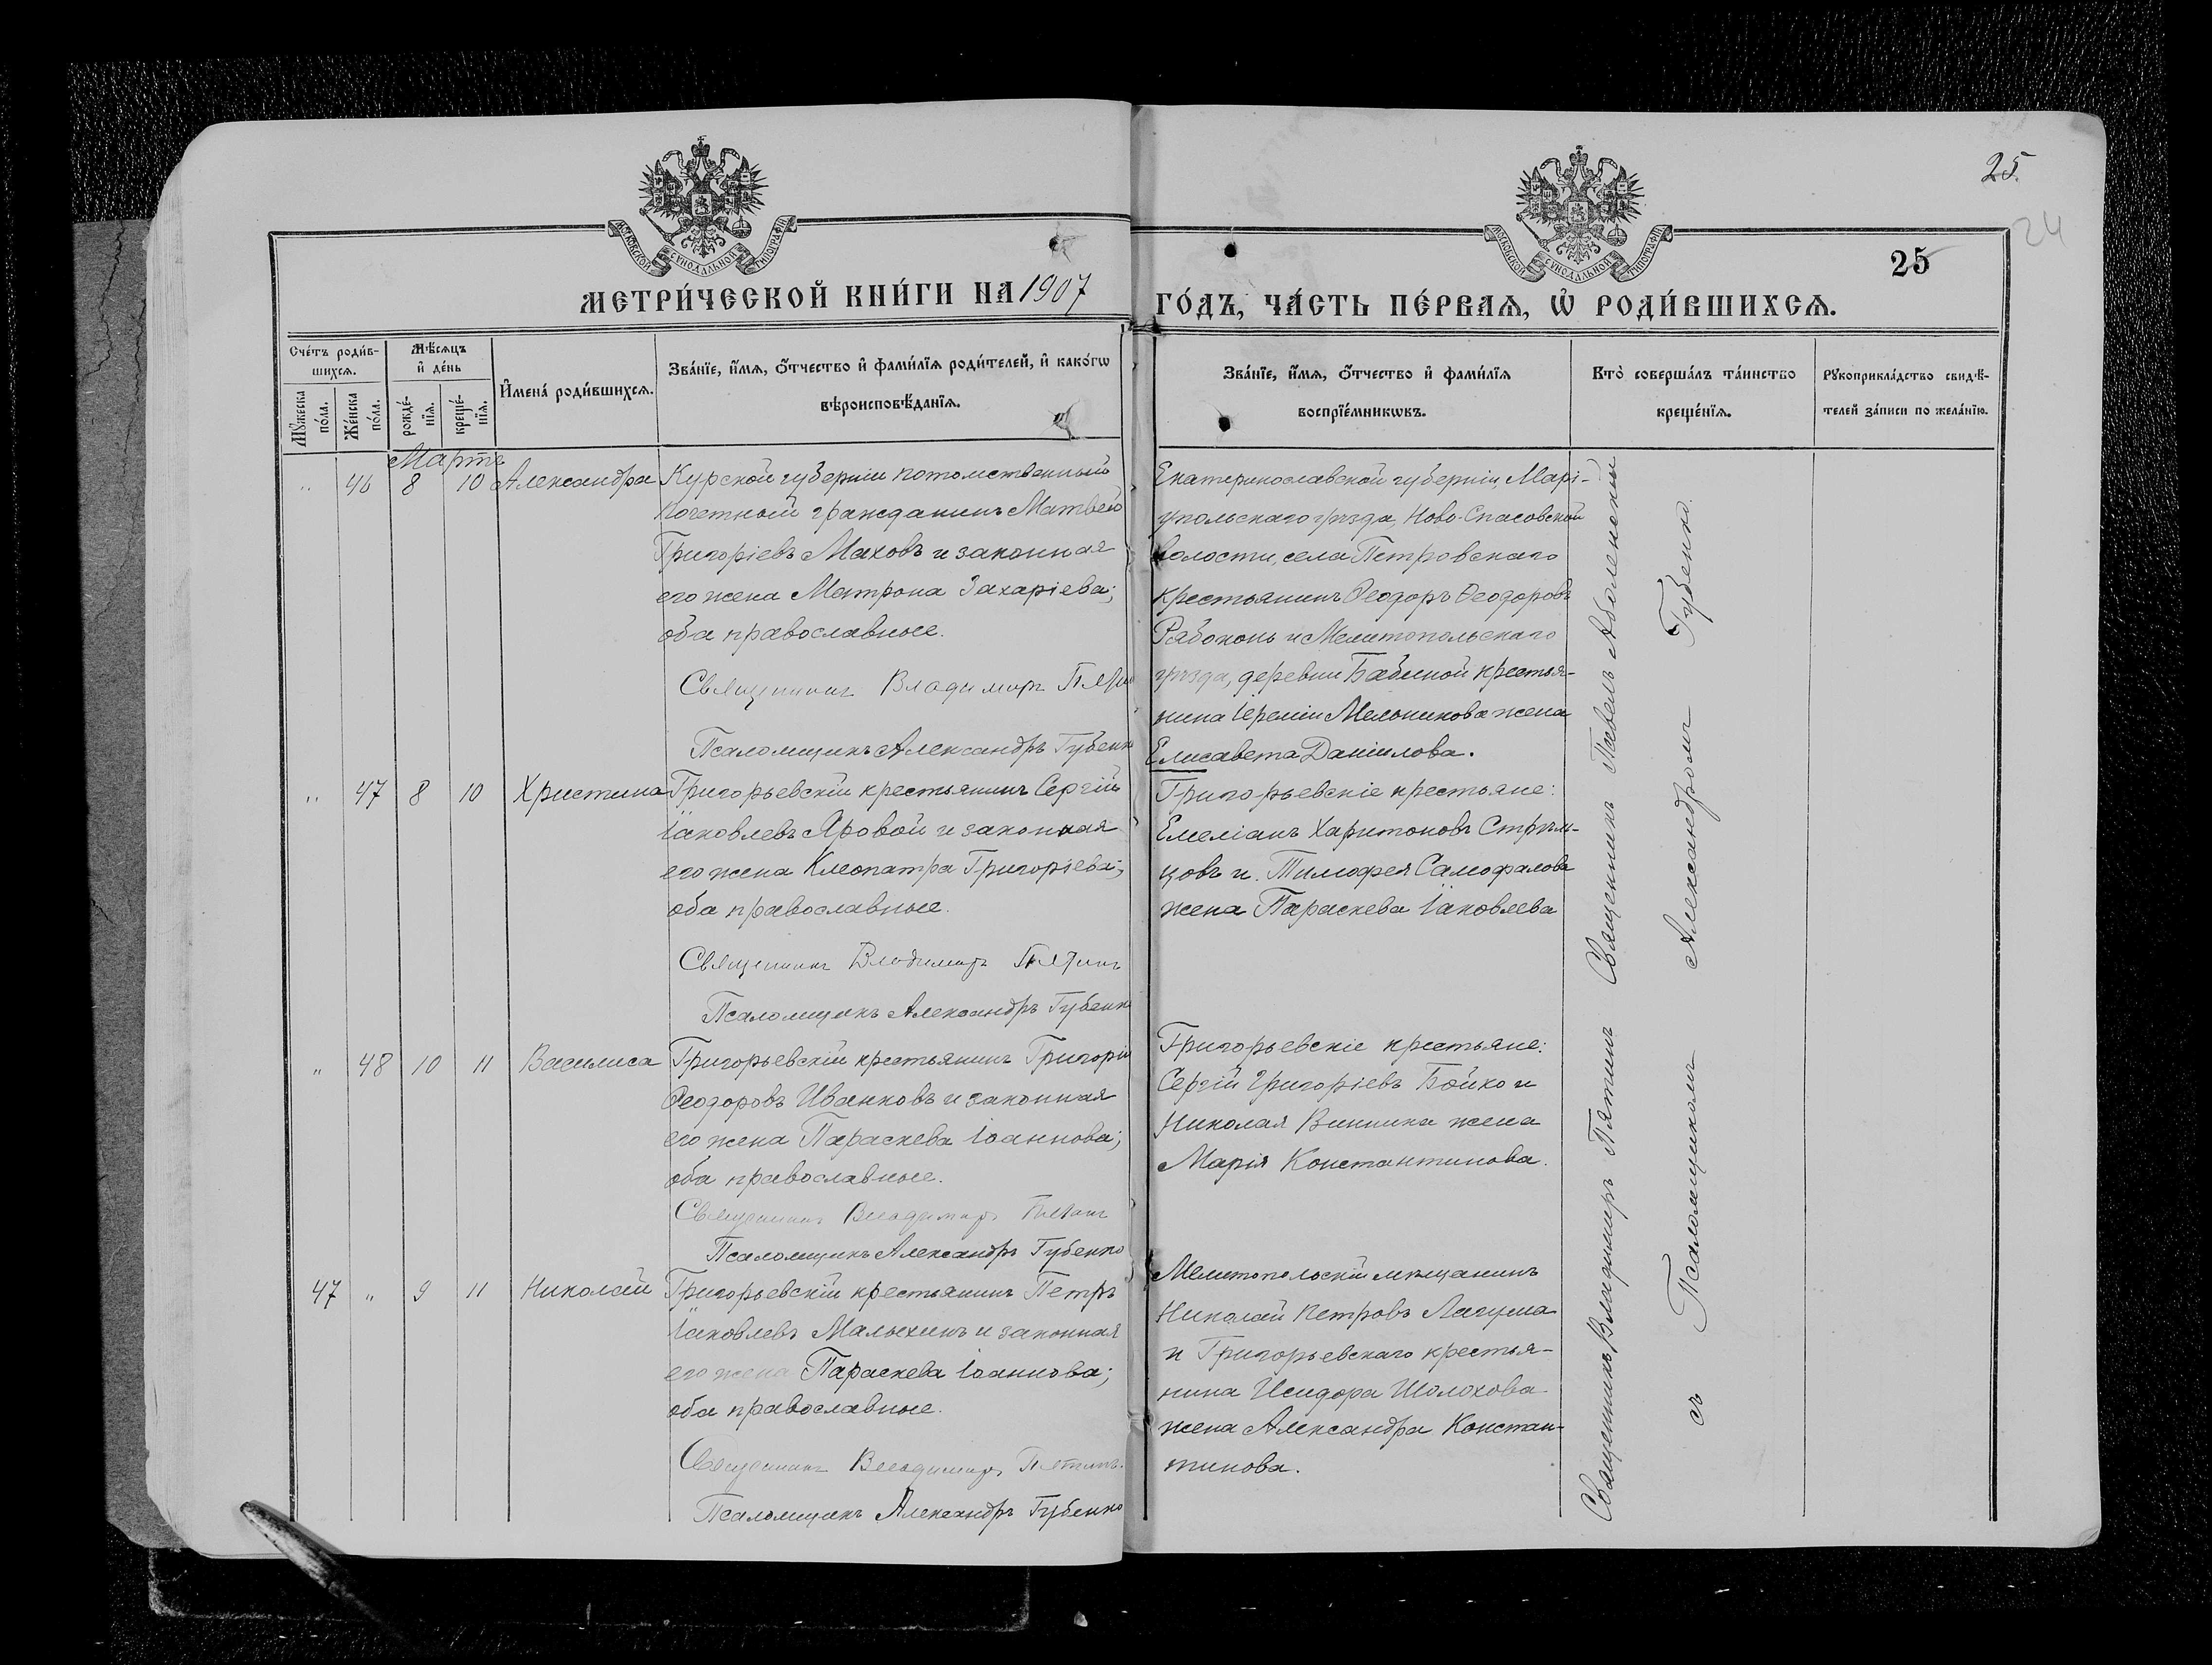 25.
24
МОСКОВСКОЙ СѴНОДАЛЬНОЙ ТИПОГРАФІИ
МОСКОВСКОЙ СѴНОДАЛЬНОЙ ТИПОГРАФІИ
25
МЕТРИ́ЧЕСКОЙ КНИ́ГИ НА 1907
ГО́ДЪ, ЧА́СТЬ ПЕ́РВАѦ, Ѡ҆ РОДИ́ВШИХСѦ.
Сче́тъ роди́в-
шихсѧ.
Мѣ́сѧцъ
и҆ де́нь
Мꙋ́жеска
по́ла.
Же́нска
по́ла.
рожде́-
нїѧ.
креще́-
нїѧ.
И҆мена̀ роди́вшихсѧ.
Зва́нїе, и҆́мѧ, ѻ҆́тчество и҆ фами́лїѧ роди́телей, и҆ како́гѡ
вѣроисповѣ́данїѧ.
Зва́нїе, и҆́мѧ, ѻ҆́тчество и҆ фами́лїѧ
воспрїе́мникѡвъ.
Кто̀ соверша́лъ та́инство
креще́нїѧ.
Рꙋкоприкла́дство свидѣ́-
телей за́писи по жела́нїю.
Мартъ
" 46 8 10 Александра Курской губерніи потомственный
почетный гражданинъ Матвей
Григоріевъ Маховъ и законная
его жена Матрона Захаріева;
оба православные.
Священникъ Владимиръ
Псаломщикъ Александръ Губенко
Екатеринославской губерніи, Марі-
упольскаго уѣзда, Ново-Спасовской
волости, села Петровскаго
крестьянинъ Ѳеодоръ Ѳеодоровъ
Рябоконь и Мелитопольскаго
уѣзда, деревни Бабиной крестья-
нина Іереміи Мельникова жена
Елисавета Даніилова.
" 47 8 10 Христина Григорьевскій крестьянинъ Сергій
Іаковлевъ Яровой и законная
его жена Клеопатра Григоріева;
оба православные.
Священникъ Владимиръ Пятинъ
Псаломщикъ Александръ Губенко
Григорьевскіе крестьяне:
Емеліанъ Харитоновъ Стрѣль-
цовъ и Тимофея Самофалова
жена Параскева Іаковлева
" 48 10 11 Василиса Григорьевскій крестьянинъ Григорій
Ѳеодоровъ Иванковъ и законная
его жена Параскева Іоаннова;
оба православные.
Священникъ Владимиръ Пятинъ
Псаломщикъ Александръ Губенко
Григорьевскіе крестьяне:
Сергій Григоріевъ Бойко и
Николая Винника жена
Марія Константинова.
47 " 9 11 Николай Григорьевскій крестьянинъ Петръ
Іаковлевъ Малыхинъ и законная
его жена Параскева Іоаннова;
оба православные.
Священникъ Владимиръ Пятинъ.
Псаломщикъ Александръ Губенко
Мелитопольскій мѣщанинъ
Николай Петровъ Лагума
и Григорьевскаго крестья-
нина Исидора Шолохова
жена Александра Констан-
тинова.
Священникъ Владимиръ Пятинъ Священникъ Павелъ Аболенскій
съ Псаломщикомъ Александромъ Губенко.